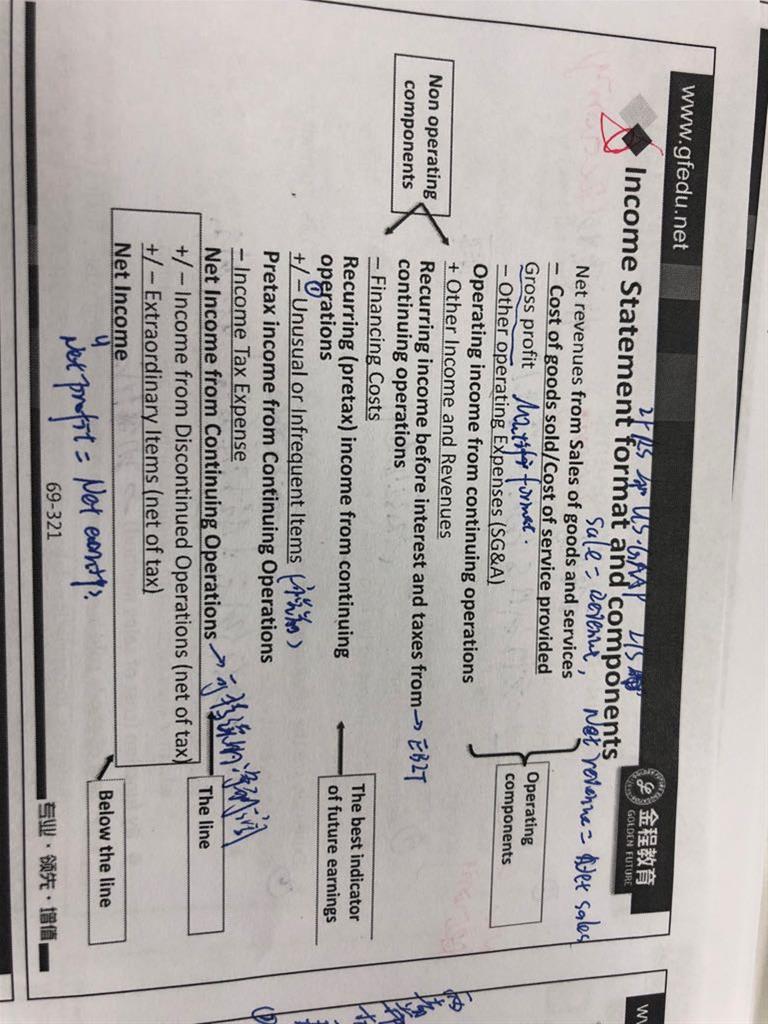 www.gfedu.net
金程教育
GOLDEN FUTURE
Income Statement format and components
sale = revenue, Net revenue = net sales
Net revenues from Sales of goods and services
− Cost of goods sold/Cost of service provided
Gross profit
− Other operating Expenses (SG&A)
Operating income from continuing operations
Operating components
+ Other Income and Revenues
Recurring income before interest and taxes from
continuing operations
→ EBIT
Non operating
components
− Financing Costs
Recurring (pretax) income from continuing
operations
The best indicator
of future earnings
+/− Unusual or Infrequent Items
Pretax income from Continuing Operations
− Income Tax Expense
Net Income from Continuing Operations
The line
+/− Income from Discontinued Operations (net of tax)
+/− Extraordinary Items (net of tax)
Net Income
Below the line
Net profit = Net
69-321
专业·领先·增值